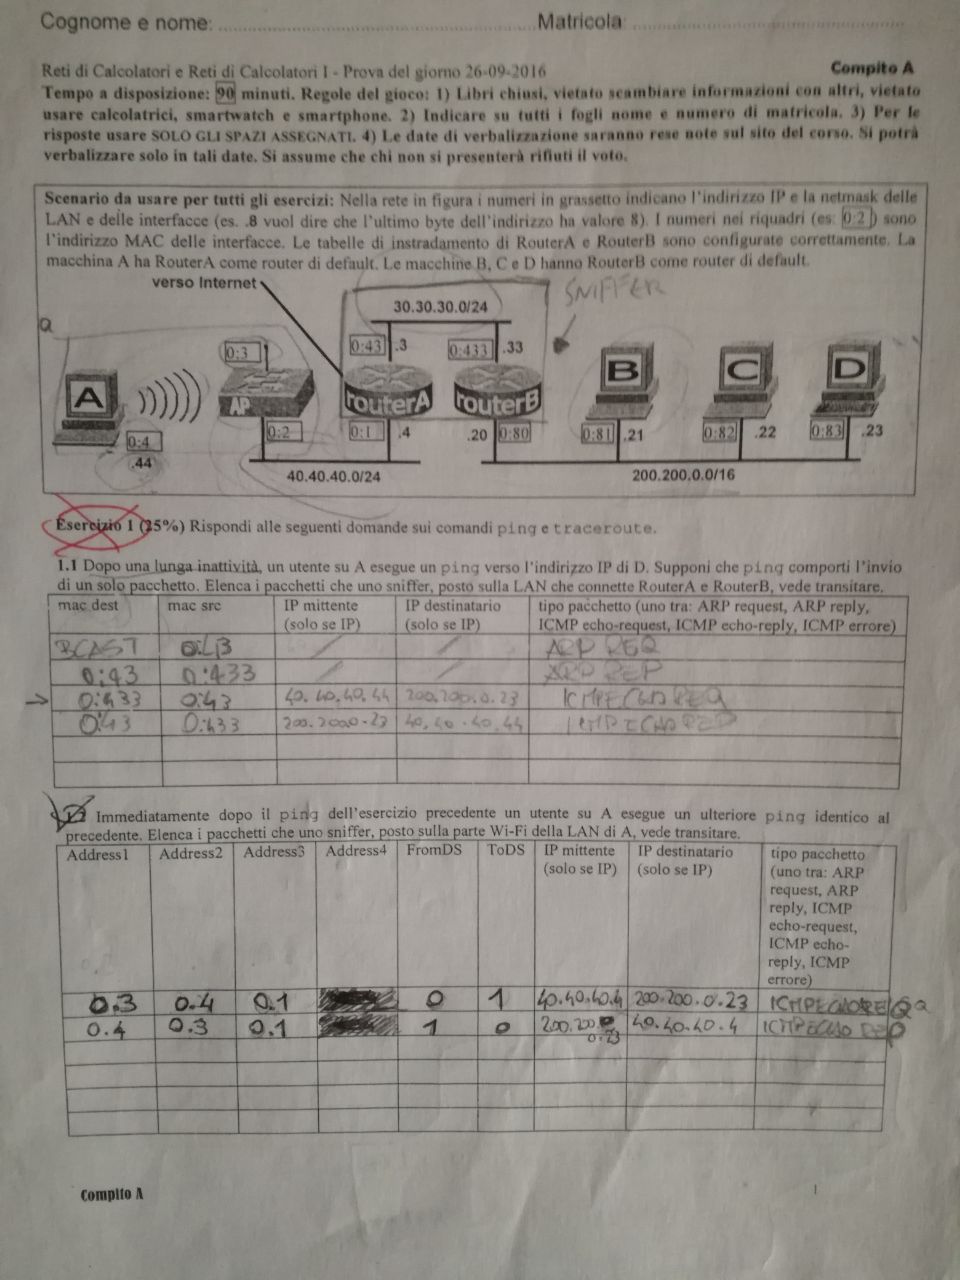 Cognome e nome: ........................ Matricola: ........................
Reti di Calcolatori e Reti di Calcolatori I - Prova del giorno 26-09-2016 Compito A
Tempo a disposizione: 90 minuti. Regole del gioco: 1) Libri chiusi, vietato scambiare informazioni con altri, vietato
usare calcolatrici, smartwatch e smartphone. 2) Indicare su tutti i fogli nome e numero di matricola. 3) Per le
risposte usare SOLO GLI SPAZI ASSEGNATI. 4) Le date di verbalizzazione saranno rese note sul sito del corso. Si potrà
verbalizzare solo in tali date. Si assume che chi non si presenterà rifiuti il voto.
Scenario da usare per tutti gli esercizi: Nella rete in figura i numeri in grassetto indicano l'indirizzo IP e la netmask delle
LAN e delle interfacce (es. .8 vuol dire che l'ultimo byte dell'indirizzo ha valore 8). I numeri nei riquadri (es: 0:2) sono
l'indirizzo MAC delle interfacce. Le tabelle di instradamento di RouterA e RouterB sono configurate correttamente. La
macchina A ha RouterA come router di default. Le macchine B, C e D hanno RouterB come router di default.
verso Internet
SNIFFER
30.30.30.0/24
0:3 0:43 .3 0:433 .33
A AP routerA routerB B C D
0:4 0:2 0:1 .4 .20 0:80 0:81 .21 0:82 .22 0:83 .23
.44
40.40.40.0/24 200.200.0.0/16
Esercizio 1 (25%) Rispondi alle seguenti domande sui comandi ping e traceroute.
1.1 Dopo una lunga inattività, un utente su A esegue un ping verso l'indirizzo IP di D. Supponi che ping comporti l'invio
di un solo pacchetto. Elenca i pacchetti che uno sniffer, posto sulla LAN che connette RouterA e RouterB, vede transitare.
mac dest mac src IP mittente (solo se IP) IP destinatario (solo se IP) tipo pacchetto (uno tra: ARP request, ARP reply, ICMP echo-request, ICMP echo-reply, ICMP errore)
BCAST 0:43 / / ARP REQ
0:43 0:433 / / ARP REP
→ 0:433 0:43 40.40.40.44 200.200.0.23 ICMPECHO REQ
0:43 0:433 200.200.0.23 40.40.40.44 ICMP ECHO REP
1.2 Immediatamente dopo il ping dell'esercizio precedente un utente su A esegue un ulteriore ping identico al
precedente. Elenca i pacchetti che uno sniffer, posto sulla parte Wi-Fi della LAN di A, vede transitare.
Address1 Address2 Address3 Address4 FromDS ToDS IP mittente (solo se IP) IP destinatario (solo se IP) tipo pacchetto (uno tra: ARP request, ARP reply, ICMP echo-request, ICMP echo-reply, ICMP errore)
0.3 0.4 0.1 0 1 40.40.40.4 200.200.0.23 ICMPECHOREQ
0.4 0.3 0.1 1 0 200.200.0.23 40.40.40.4 ICMPECHO REP
Compito A
1